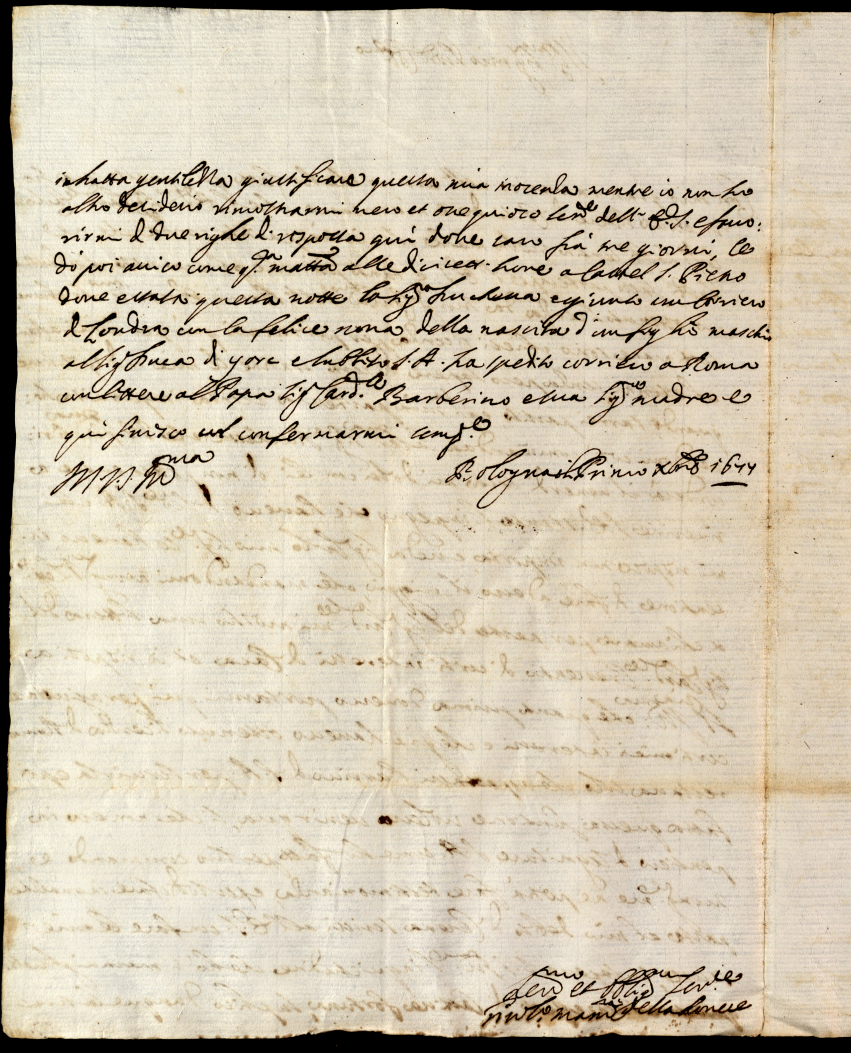 in tratta gentilezza giustificare questa mia inocenza mentre io non ho
altro desiderio rimostrarmi vero et osequioso ser.re dell' S. e favo:
rirmi d due righe di risposta qui dove saro fra tre giorni, Ce
poi aviso come q.ta alle dicisett' hore a Castel S. Pietro
dove e stata questa notte la Sig.ra Duchessa e giunto un Coriero
d Londra con la felice nova della nascita d un figlio maschio
al Sig Duca di york e subbito S. A. ha spedito corriero a Roma
con littere al Papa Sig Card.le Barberino e sua Sig.ra madre e
qui finisco col confermarmi
Bologna il Primo Xbre 1677
Ser.re
della